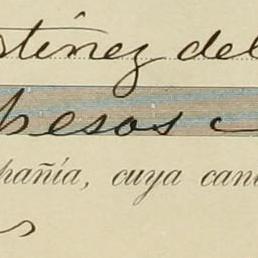 stinez del
pesos
pañía, cuya can